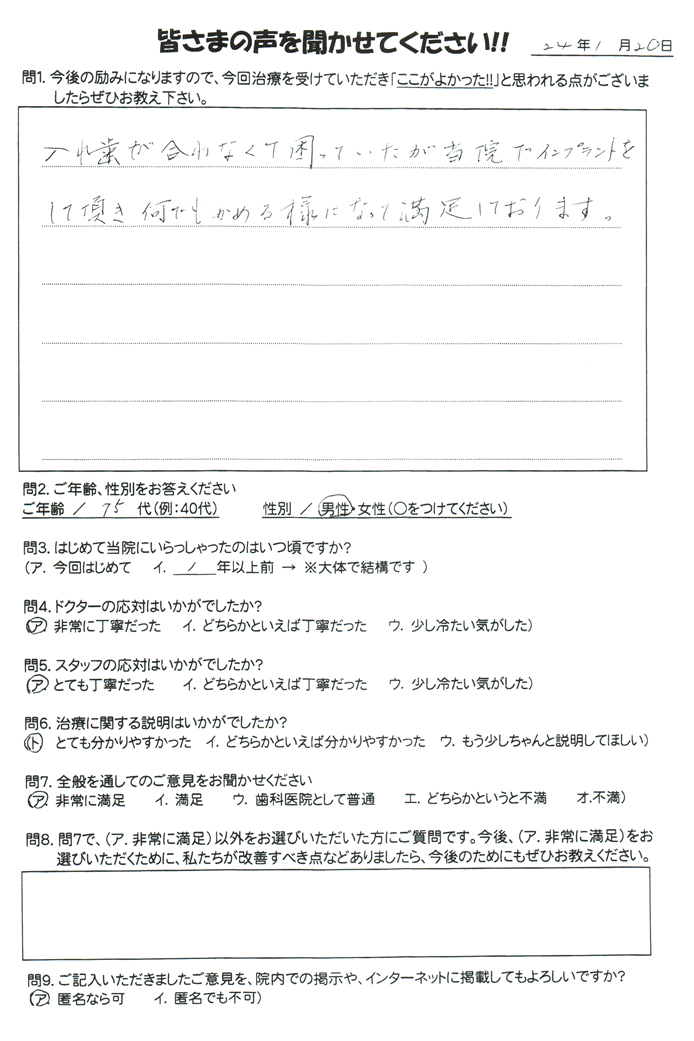 皆さまの声を聞かせてください!! 24年1月20日
問1. 今後の励みになりますので、今回治療を受けていただき「ここがよかった!!」と思われる点がございま
したらぜひお教え下さい。
入れ歯が合わなくて困っていたが当院でインプラントを
して頂き何でもかめる様になって満足しております。
問2. ご年齢、性別をお答えください
ご年齢 / 75 代(例:40代) 性別 / 男性・女性(○をつけてください)
問3. はじめて当院にいらっしゃったのはいつ頃ですか?
(ア. 今回はじめて イ. 1 年以上前 → ※大体で結構です )
問4. ドクターの応対はいかがでしたか?
(ア 非常に丁寧だった イ. どちらかといえば丁寧だった ウ. 少し冷たい気がした)
問5. スタッフの応対はいかがでしたか?
(ア. とても丁寧だった イ. どちらかといえば丁寧だった ウ. 少し冷たい気がした)
問6. 治療に関する説明はいかがでしたか?
(ト とても分かりやすかった イ. どちらかといえば分かりやすかった ウ. もう少しちゃんと説明してほしい)
問7. 全般を通してのご意見をお聞かせください
(ア. 非常に満足 イ. 満足 ウ. 歯科医院として普通 エ. どちらかというと不満 オ.不満)
問8. 問7で、(ア. 非常に満足)以外をお選びいただいた方にご質問です。今後、(ア. 非常に満足)をお
選びいただくために、私たちが改善すべき点などありましたら、今後のためにもぜひお教えください。
問9. ご記入いただきましたご意見を、院内での掲示や、インターネットに掲載してもよろしいですか?
(ア. 匿名なら可 イ. 匿名でも不可)